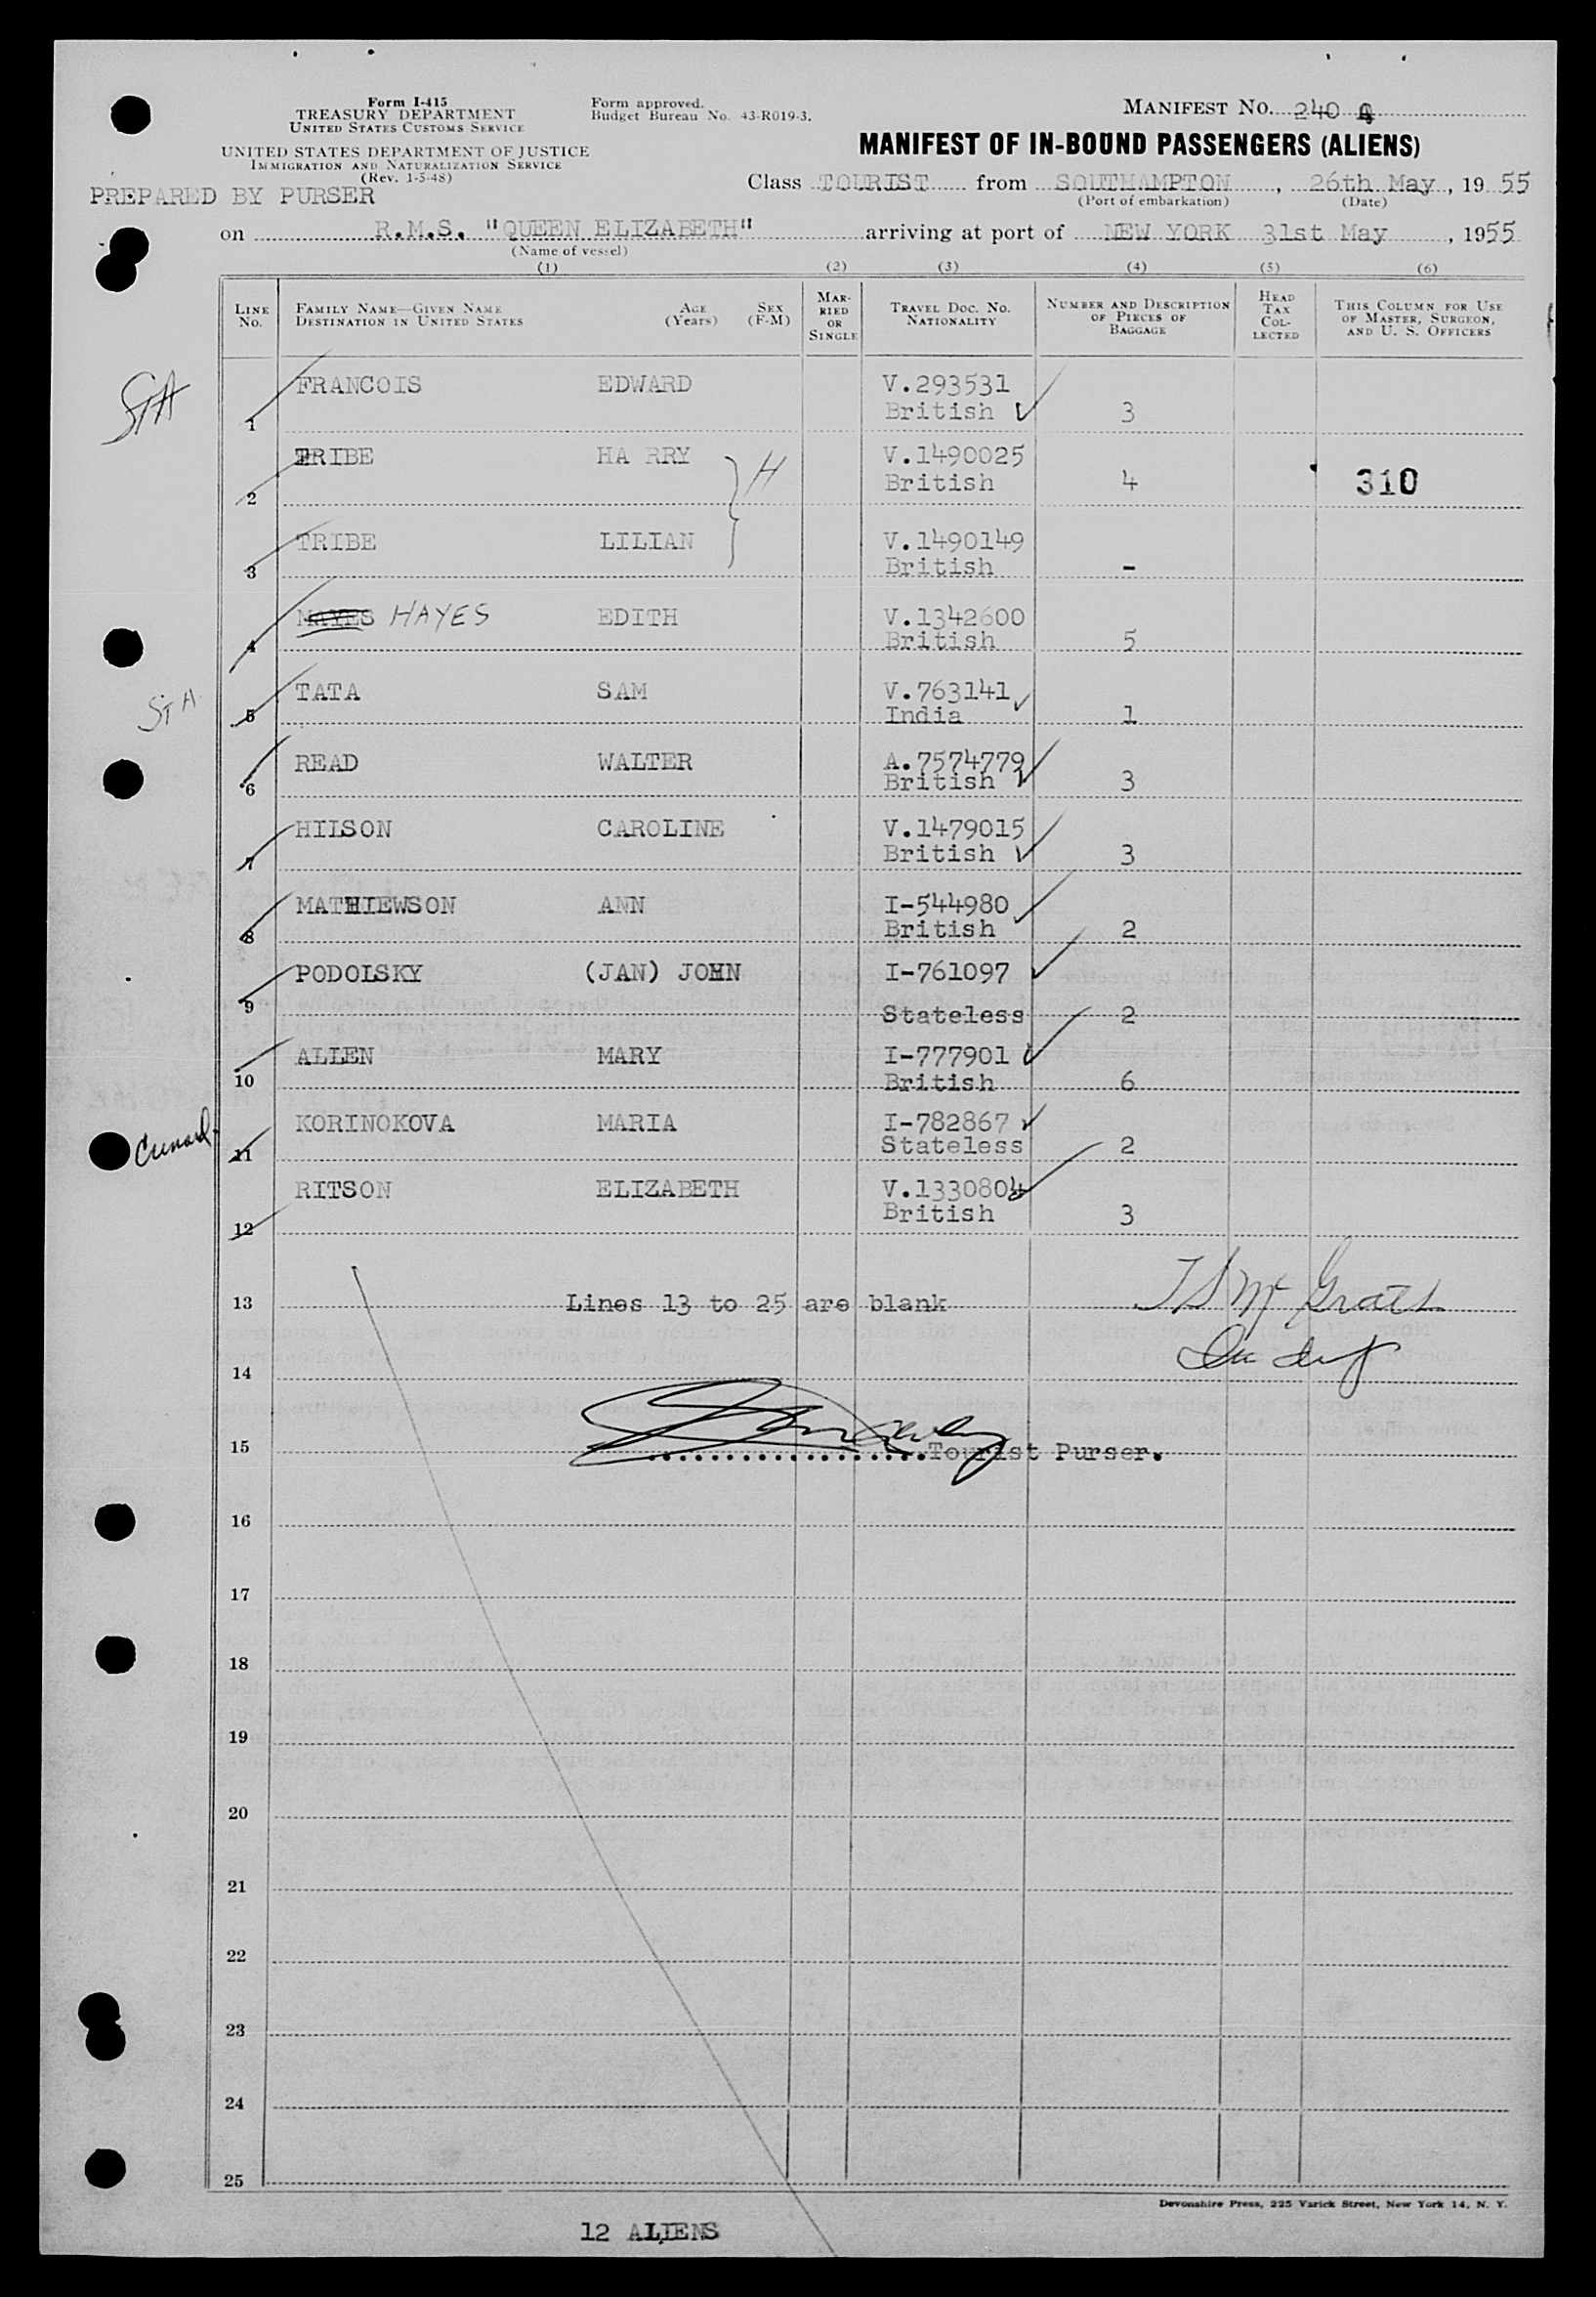 Form I-415
TREASURY DEPARTMENT
UNITED STATES CUSTOMS SERVICE
UNITED STATES DEPARTMENT OF JUSTICE
IMMIGRATION AND NATURALIZATION SERVICE
(Rev. 1-5-48)
PREPARED BY PURSER
Form approved.
Budget Bureau No. 43-R019-3.
MANIFEST No. 240
MANIFEST OF IN-BOUND PASSENGERS (ALIENS)
Class TOURIST from SOUTHAMPTON, 26th May, 1955
(Port of embarkation) (Date)
on R.M.S. "QUEEN ELIZABETH" arriving at port of NEW YORK 31st May, 1955
(Name of vessel)
(1) (2) (3) (4) (5) (6)
LINE No. FAMILY NAME—GIVEN NAME DESTINATION IN UNITED STATES AGE (Years) SEX (F-M) MARRIED OR SINGLE TRAVEL DOC. NO. NATIONALITY NUMBER AND DESCRIPTION OF PIECES OF BAGGAGE HEAD TAX COLLECTED THIS COLUMN FOR USE OF MASTER, SURGEON, AND U. S. OFFICERS
STA
FRANCOIS EDWARD V.293531
1 British 3
TRIBE HA RRY V.1490025
2 British 4 310
H
TRIBE LILIAN V.1490149
3 British -
MAYES HAYES EDITH V.1342600
4 British 5
TATA SAM V.763141
STA 5 India 1
READ WALTER A.7574779
6 British 3
HILSON CAROLINE V.1479015
7 British 3
MATHIEWSON ANN I-544980
8 British 2
PODOLSKY (JAN) JOHN I-761097
9 Stateless 2
ALLEN MARY I-777901
10 British 6
KORINOKOVA MARIA I-782867
Cunard 11 Stateless 2
RITSON ELIZABETH V.1330804
12 British 3
13 Lines 13 to 25 are blank
14
15 Tourist Purser.
16
17
18
19
20
21
22
23
24
25
Devonshire Press, 225 Varick Street, New York 14, N. Y.
12 ALIENS